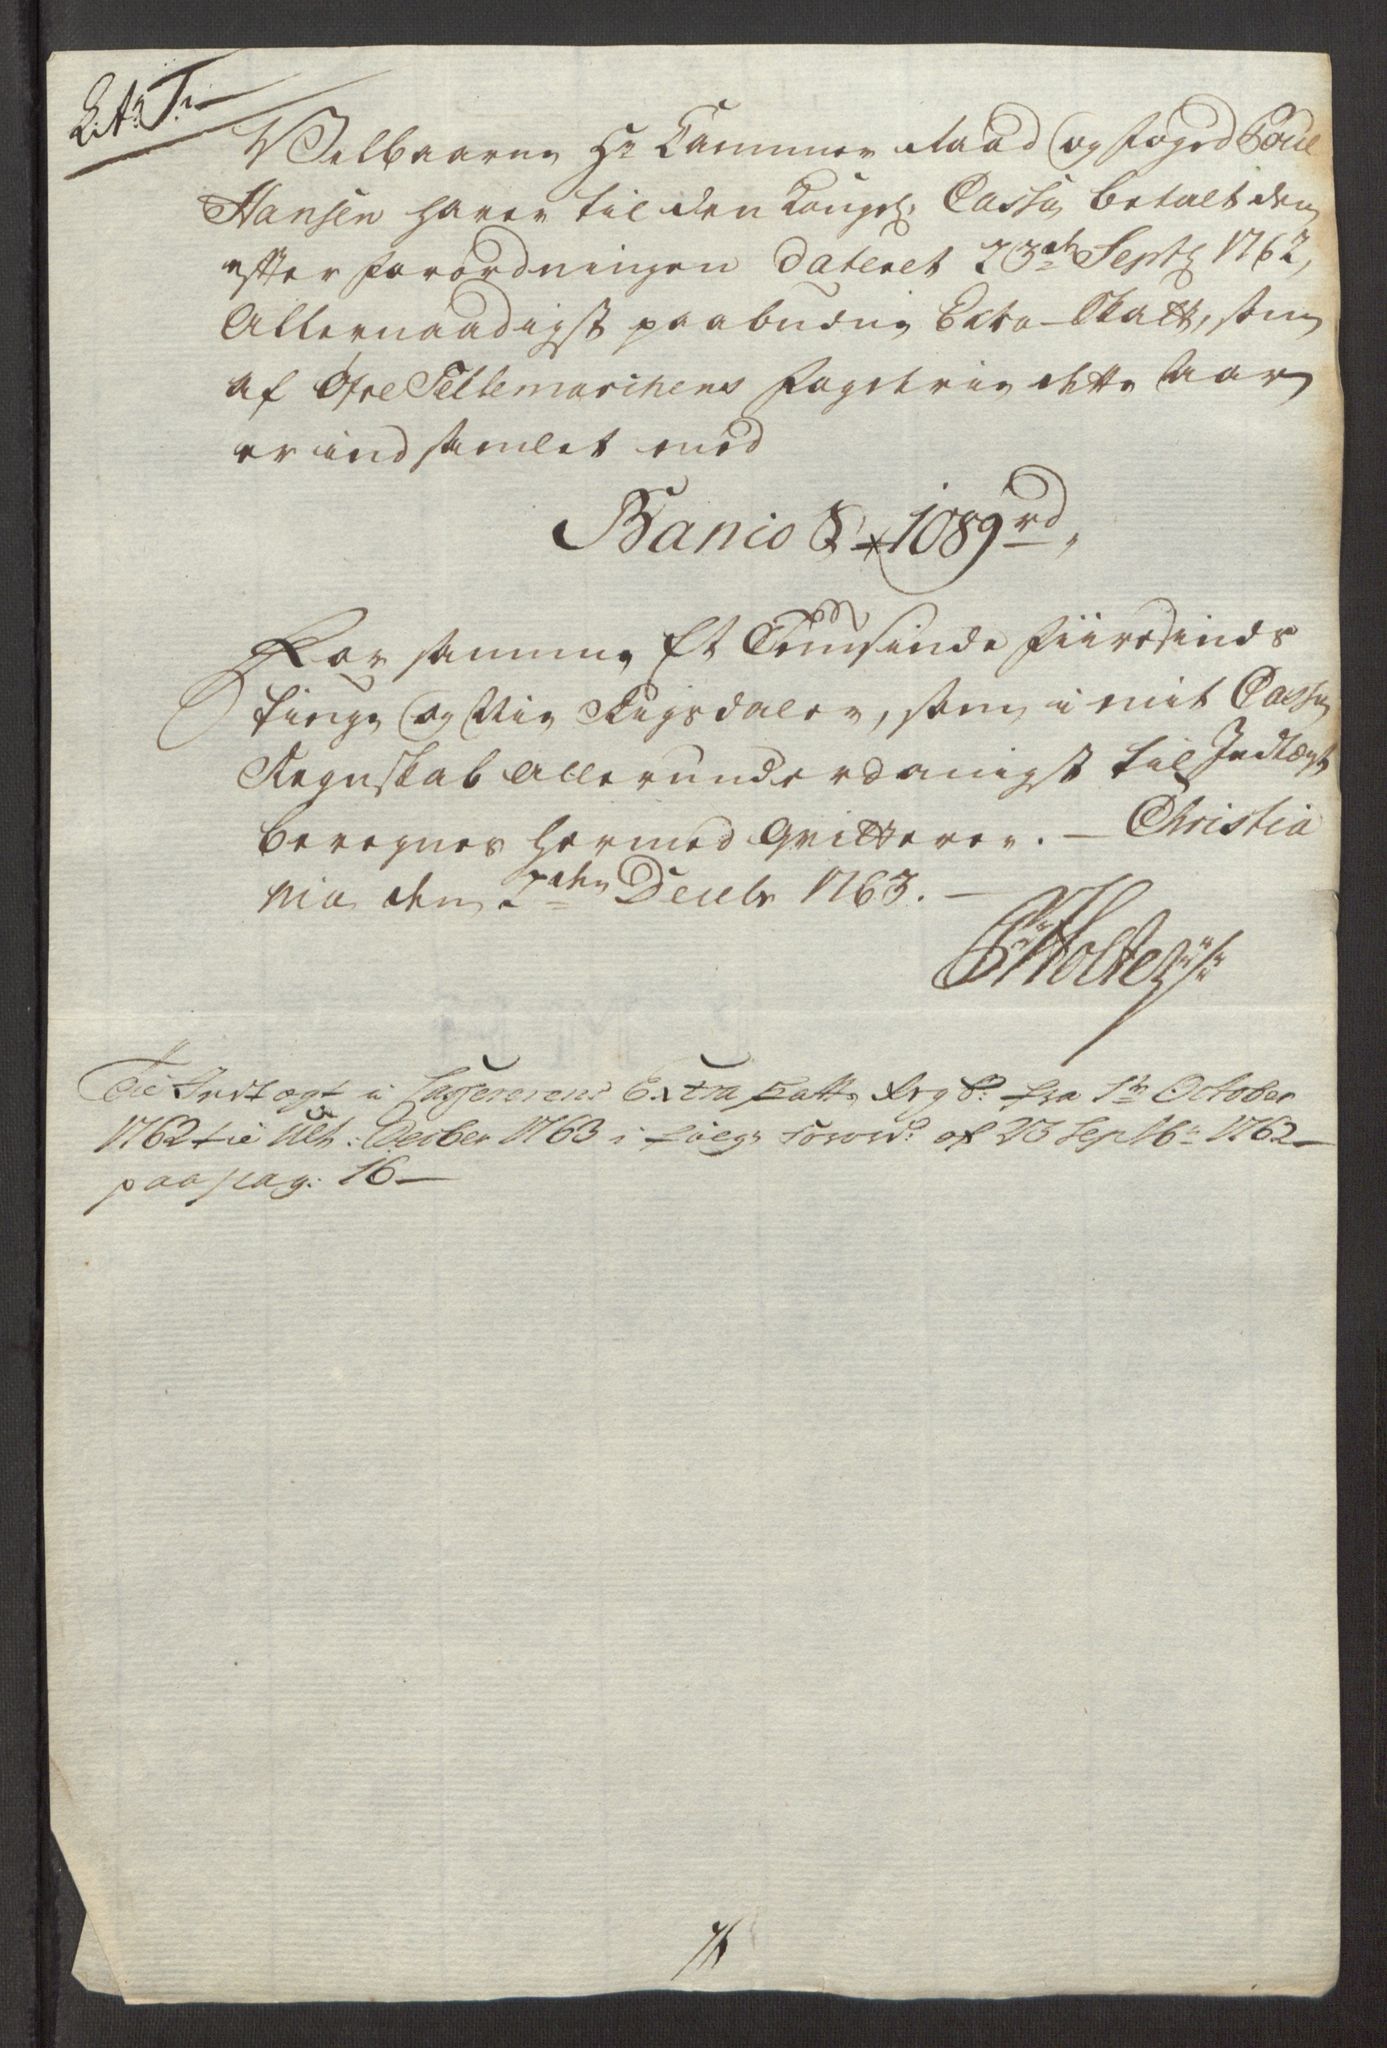 Litr: T.
Velbaarne Hr Cammer Raad og foged Poul
Hansen haver til den Kongel: Cassa betalt den
efter forordningen dateret 23de Septr 1762,
Allernaadigst paabudne Extra-Skatt, som
af Øfre Tellemarchens fogderie dette Aar
er indsamlet med
Banco S 1089 rd,
For samme Et Tousinde fiiresinds
tiuge og Nie Rigsdaler, som i mit Cassa
Regnskab Allerunderdanigst til Indtægt
beregnes hermed qvitterer. – Christia
nia den 2den Decbr 1763. –
Holter
Til Indtægt i Casserens Extraskatts Regsk: fra 1te October
1762 til Ult: Decber 1763 i følge forord: af 23 Septbr 1762
paa pag: 16 –